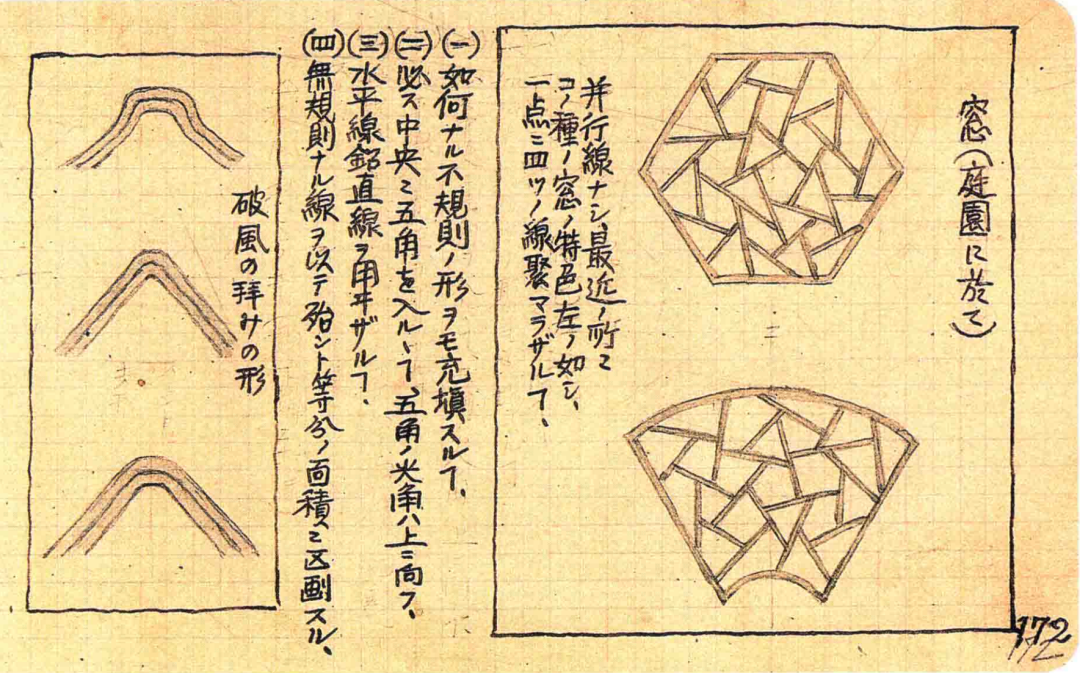 窓(庭園に於て)
并行線ナシ、最近ノ所ニ
コノ種ノ窓ノ特色左ノ如シ、
一点ニ四ツノ線聚マラザルヿ、
(一)如何ナル不規則ノ形ヲモ充塡スルヿ、
(二)必ス中央ニ五角を入ルヽヿ、五角ノ尖角ハ上ニ向フ、
(三)水平線鉛直線ヲ用ヰザルヿ、
(四)無規則ナル線ヲ以テ殆ント等分ノ面積ニ区劃スル、
破風の拝みの形
172